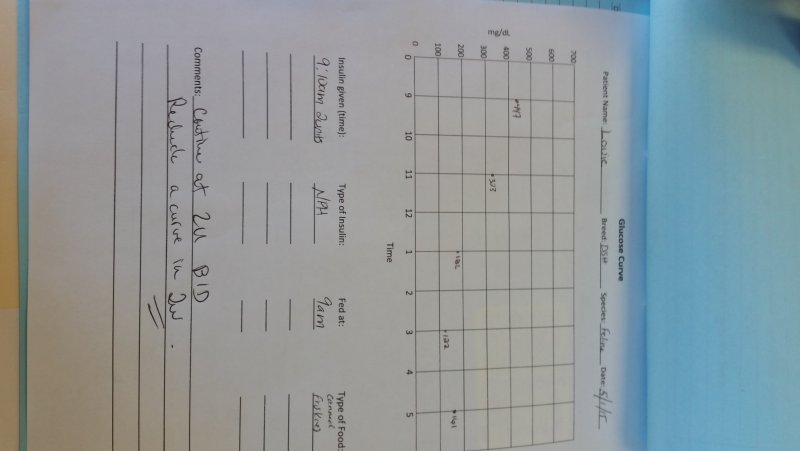 Glucose Curve
Patient Name: Louie Breed: DSH Species: Feline Date: 5/1/15
700
600
500
400
300
200
100
0
mg/dl
447
373
182
122
161
0 9 10 11 12 1 2 3 4 5
Time
Insulin given (time): Type of Insulin: Fed at: Type of Food:
9:10am 2units NPH 9am Canned Friskies
Comments: Continue at 2u BID
Recheck a curve in 2w.